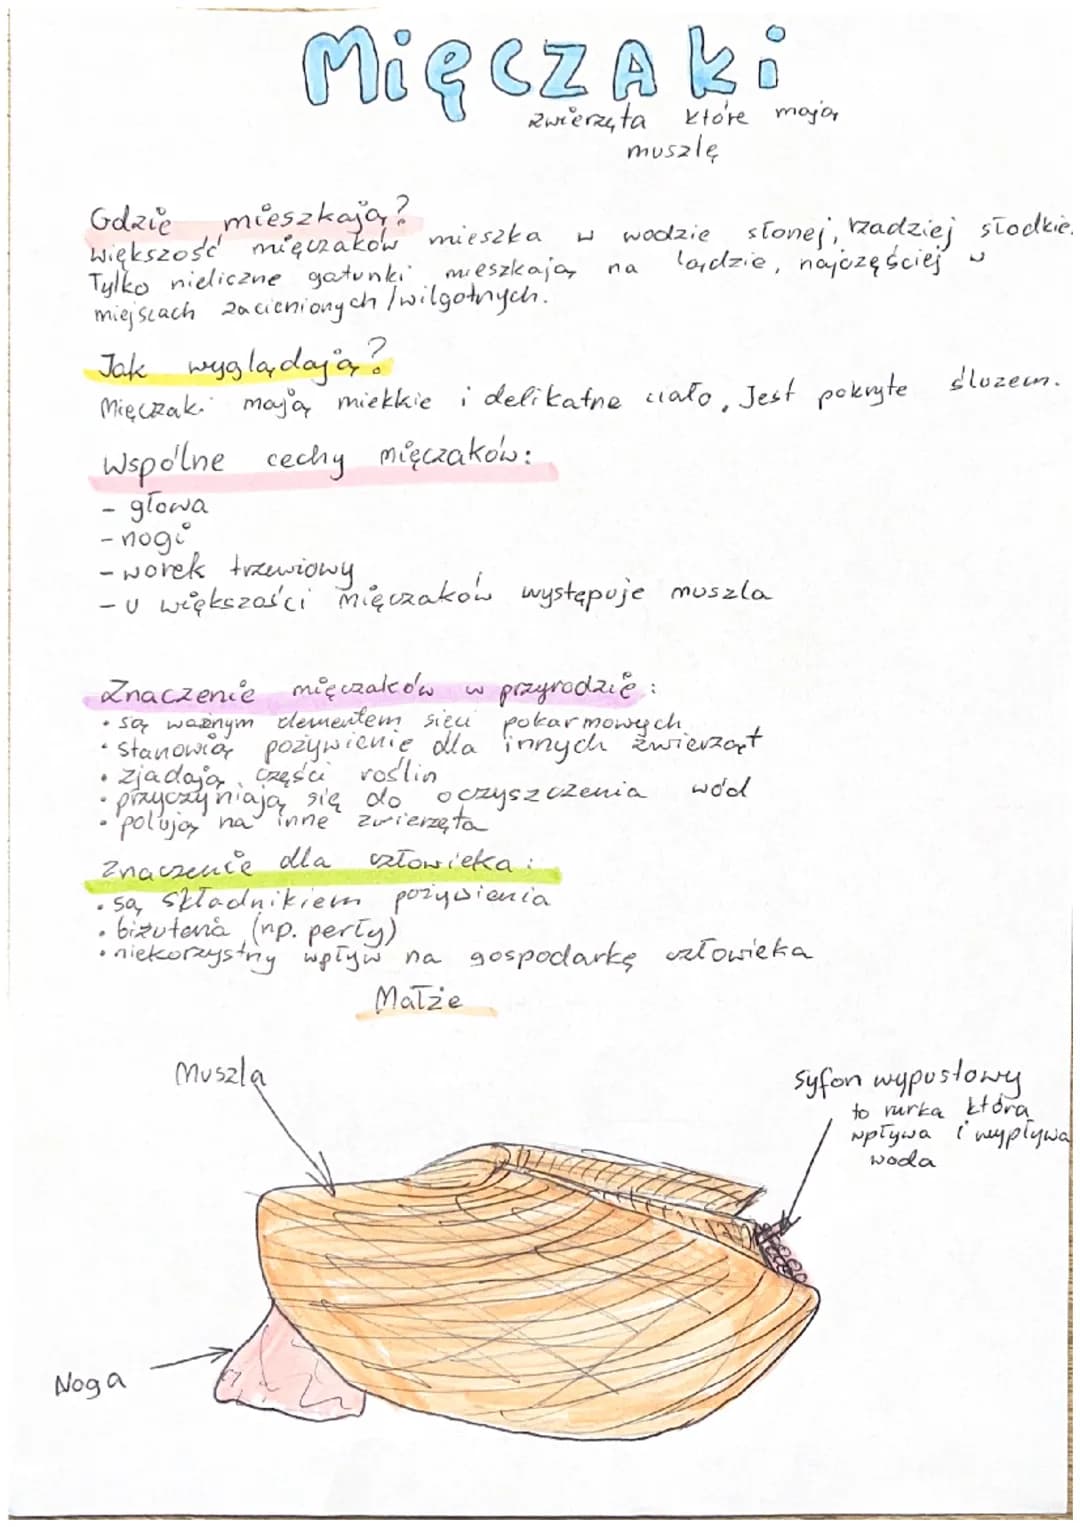 Mięczaki
zwierzęta które mają
muszlę
Gdzie mieszkają?
większość mięczaków mieszka w wodzie słonej, rzadziej słodkie.
Tylko nieliczne gatunki mieszkają na lądzie, najczęściej w
miejscach zacienionych/wilgotnych.
Jak wyglądają?
Mięczaki mają miekkie i delikatne ciało. Jest pokryte śluzem.
Wspólne cechy mięczaków:
- głowa
- nogi
- worek trzewiowy
- u większości mięczaków występuje muszla
Znaczenie mięczaków w przyrodzie:
• są ważnym elementem sieci pokarmowych
• stanowią pożywienie dla innych zwierząt
• zjadają części roślin
• przyczyniają się do oczyszczenia wód
• polują na inne zwierzęta
Znaczenie dla człowieka:
• są składnikiem pożywienia
• biżuteria (np. perły)
• niekorzystny wpływ na gospodarkę człowieka
Małże
Muszla
Syfon wypustowy
to rurka którą
wpływa i wypływa
woda
Noga